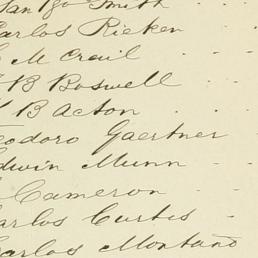 Smith
Carlos Ricken
M Crail
B Boswell
B Acton
Teodoro Gaertner
Edwin Munn
Cameron
Carlos Curtis
Carlos Montaño